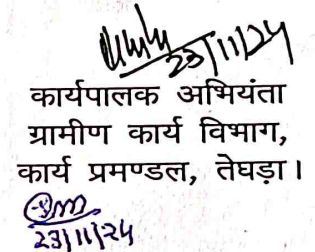 23/11/24
कार्यपालक अभियंता
ग्रामीण कार्य विभाग,
कार्य प्रमण्डल, तेघड़ा।
23/11/24